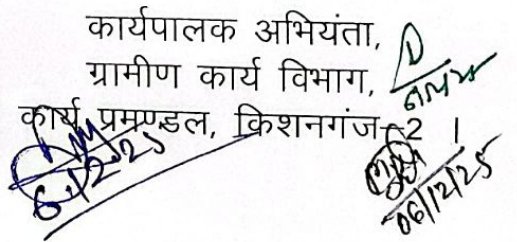 कार्यपालक अभियंता,
ग्रामीण कार्य विभाग,
कार्य प्रमण्डल, किशनगंज-2 ।
6/12/25
06/12/25